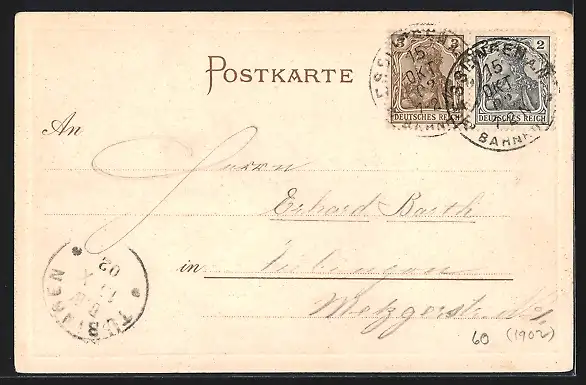 POSTKARTE
3
DEUTSCHES REICH
2
DEUTSCHES REICH
ESSLINGEN
15
OKT
02
BAHNHOF
ESSLINGEN
15
OKT
02
BAHNHOF
An
Herrn
Erhard Barth
in Tübingen
Metzgerstr.
TÜBINGEN
X
02
60 (1902)